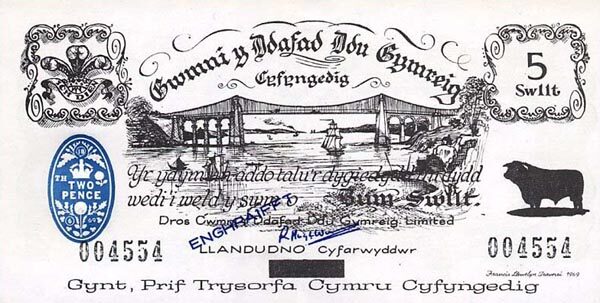 Cwmni y Ddafad Ddu Gymreig
Cyfyngedig
5
Swllt
Yr ydym yn addo talu'r dygiedydd
wedi i werth y swm o Bum Swllt.
TWO
PENCE
TH
Dros Cwmni y Ddafad Ddu Gymreig Limited
ENGHRAIFFT
004554
LLANDUDNO Cyfarwyddwr
004554
Francis Llewelyn 1969
Gynt, Prif Trysorfa Cymru Cyfyngedig